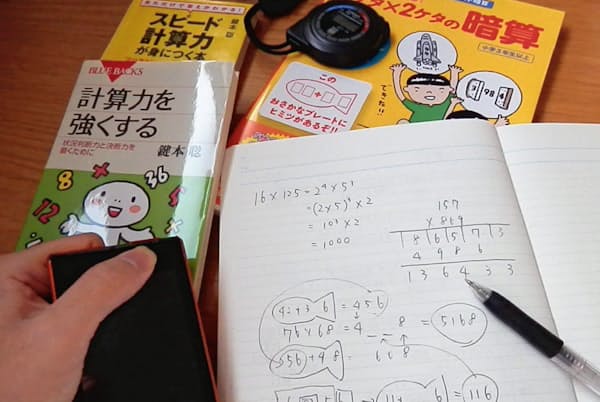 見ただけで答えがわかる!
スピード
計算力
が身につく本
鍵本 聡
BLUE BACKS
計算力を
強くする
状況判断力と決断力を
磨くために
鍵本 聡
タ×2ケタの暗算
小学3年生以上
この
おさかなプレートに
ヒミツがあるぞ!!
できた!!
16×125=2⁴×5³
=(2×5)³×2
=10³×2
=1000
157
×869
1 8 6 5 7 3
4 9 8 6
1 3 6 4 3 3
42+3 6 = 456
76×68 = 4 _ _ 8 = 5168
+48 668
116